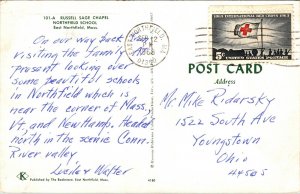 101-A RUSSELL SAGE CHAPEL
NORTHFIELD SCHOOL
East Northfield, Mass.
On our way back
visiting the family. At
present looking over
some beautiful schools
in Northfield which is
near the corner of Mass.
Vt, and New Hamp. Headed
north in the scenic Conn.
River valley
Lucile & Walter
K
Published by The Bookstore, East Northfield, Mass.
4160
1863 INTERNATIONAL RED CROSS 1963
5¢ UNITED STATES POSTAGE
POST CARD
Address
Mr Mike Ridarsky
1522 South Ave
Youngstown
Ohio
44505